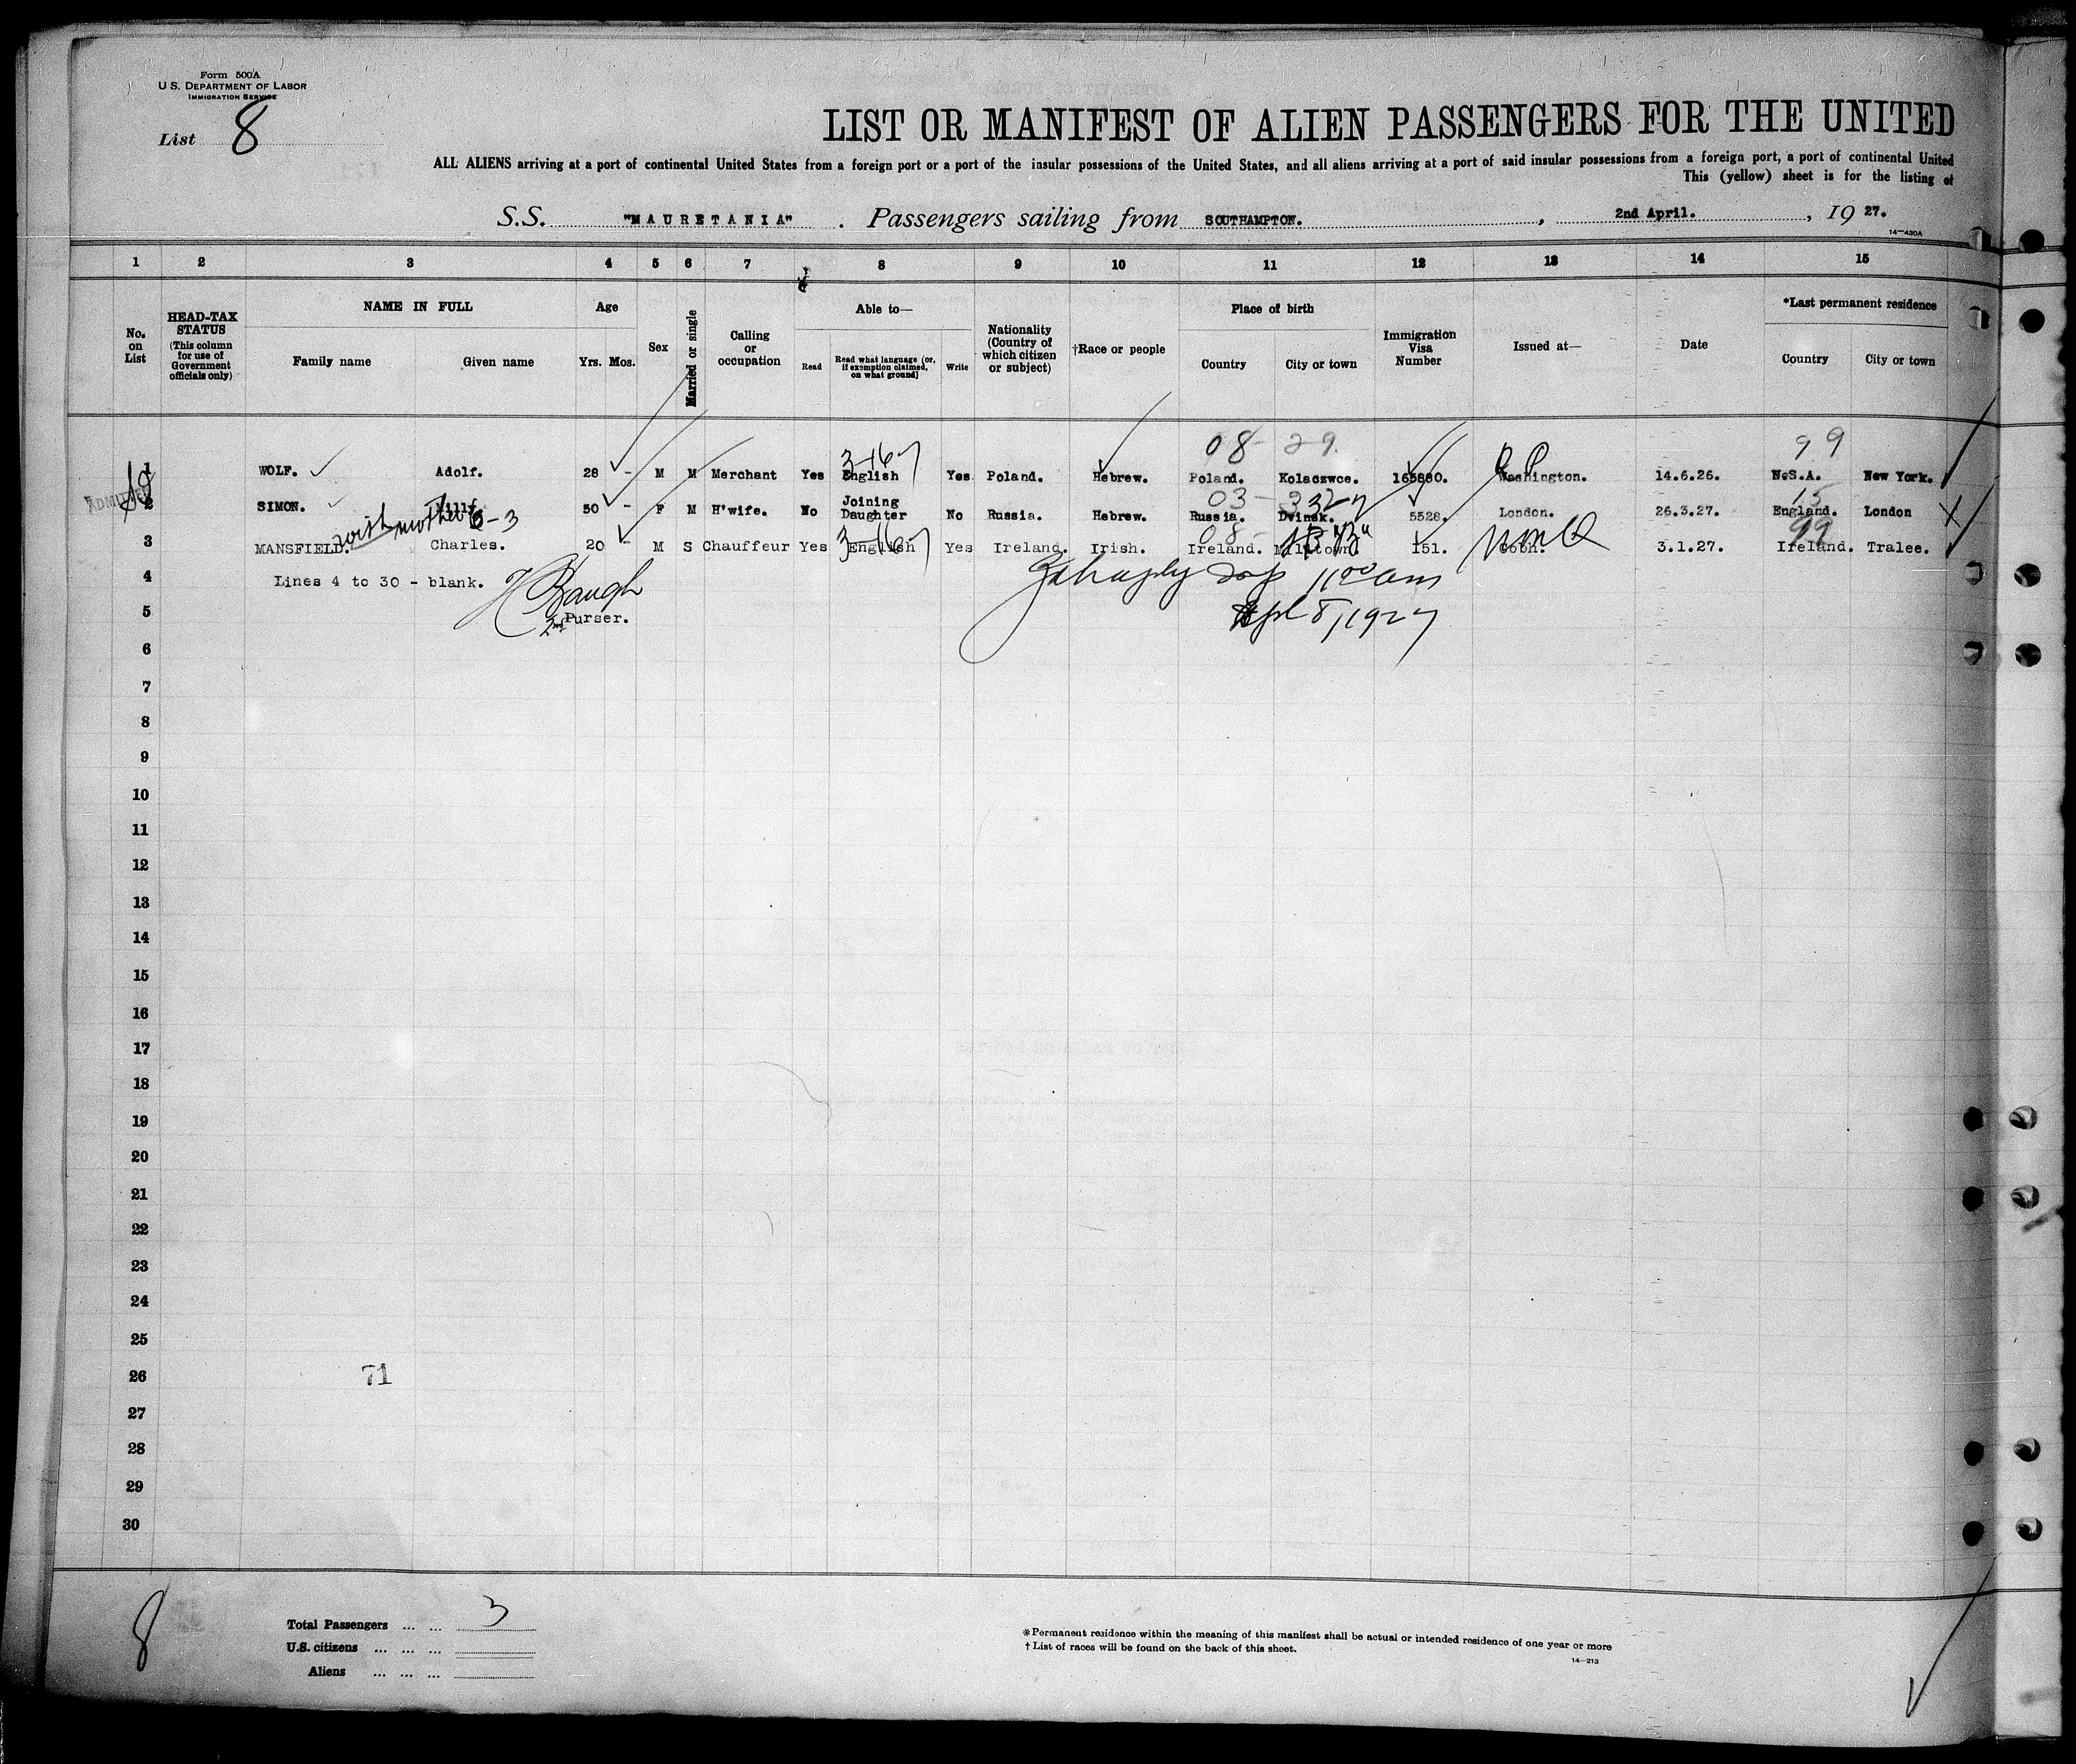 Form 500A
U.S. DEPARTMENT OF LABOR
IMMIGRATION SERVICE
List 8
LIST OR MANIFEST OF ALIEN PASSENGERS FOR THE UNITED
ALL ALIENS arriving at a port of continental United States from a foreign port or a port of the insular possessions of the United States, and all aliens arriving at a port of said insular possessions from a foreign port, a port of continental United
This (yellow) sheet is for the listing of
S.S. "MAURETANIA". Passengers sailing from SOUTHAMPTON. , 2nd April. , 19 27.
14—430A
1 2 3 4 5 6 7 8 9 10 11 12 13 14 15
No. on List
HEAD-TAX STATUS (This column for use of Government officials only)
NAME IN FULL
Family name Given name
Age
Yrs. Mos.
Sex
Married or single
Calling or occupation
Able to—
Read
Read what language (or, if exemption claimed, on what ground)
Write
Nationality (Country of which citizen or subject)
†Race or people
Place of birth
Country City or town
Immigration Visa Number
Issued at—
Date
*Last permanent residence
Country City or town
08-29. 99
3-167
1 WOLF. Adolf. 28 - M M Merchant Yes English Yes Poland. Hebrew. Poland. Kolaczwce. Washington. 14.6.26. New York.
ADMITTED
03- 15
2 SIMON. 50 - F M H'wife. No Joining Daughter No Russia. Hebrew. Russia. Dvinsk. 5528. London. 26.3.27. England. London
6-3
3-167 08- 99
3 MANSFIELD. Charles. 20 - M S Chauffeur Yes English Yes Ireland. Irish. Ireland. 151. 3.1.27. Ireland. Tralee.
4 Lines 4 to 30 - blank.
11 00 am
5 2nd Purser.
Apl 8, 1927
6
7
8
9
10
11
12
13
14
15
16
17
18
19
20
21
22
23
24
25
26 71
27
28
29
30
8
Total Passengers ... ... 3
U.S. citizens ... ... ...
Aliens ... ... ...
*Permanent residence within the meaning of this manifest shall be actual or intended residence of one year or more
†List of races will be found on the back of this sheet.
14—213